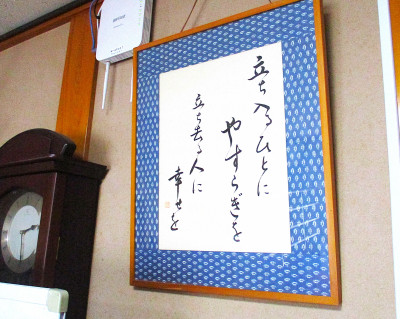 立ち入るひとに
やすらぎを
立ち去る人に
幸せを